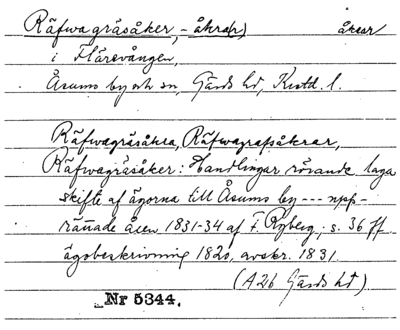 Räfwagräsåker, - åkra(r) åkrar
i Flärevången,
Åsums by och sn, Gärds hd, Kristd. l.
Räfwagräsåkra, Räfwagrafsåkrar,
Räfwagräsåker: Handlingar rörande laga
skifte af ägorna till Åsums by --- upp-
rättade åren 1831-34 af F. Ryberg; s. 36 ff
ägobeskrivning 1820, avskr. 1831.
(A26 Gärds hd).
Nr 5344.